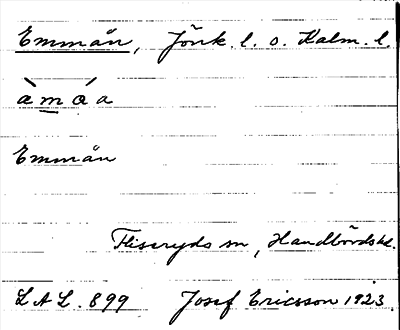 Emmån, Jönk. l. o. Kalm. l.
àmåa
Emmån
Fliseryds sn, Handbördshd.
LAL. 899 Josef Ericsson 1923.